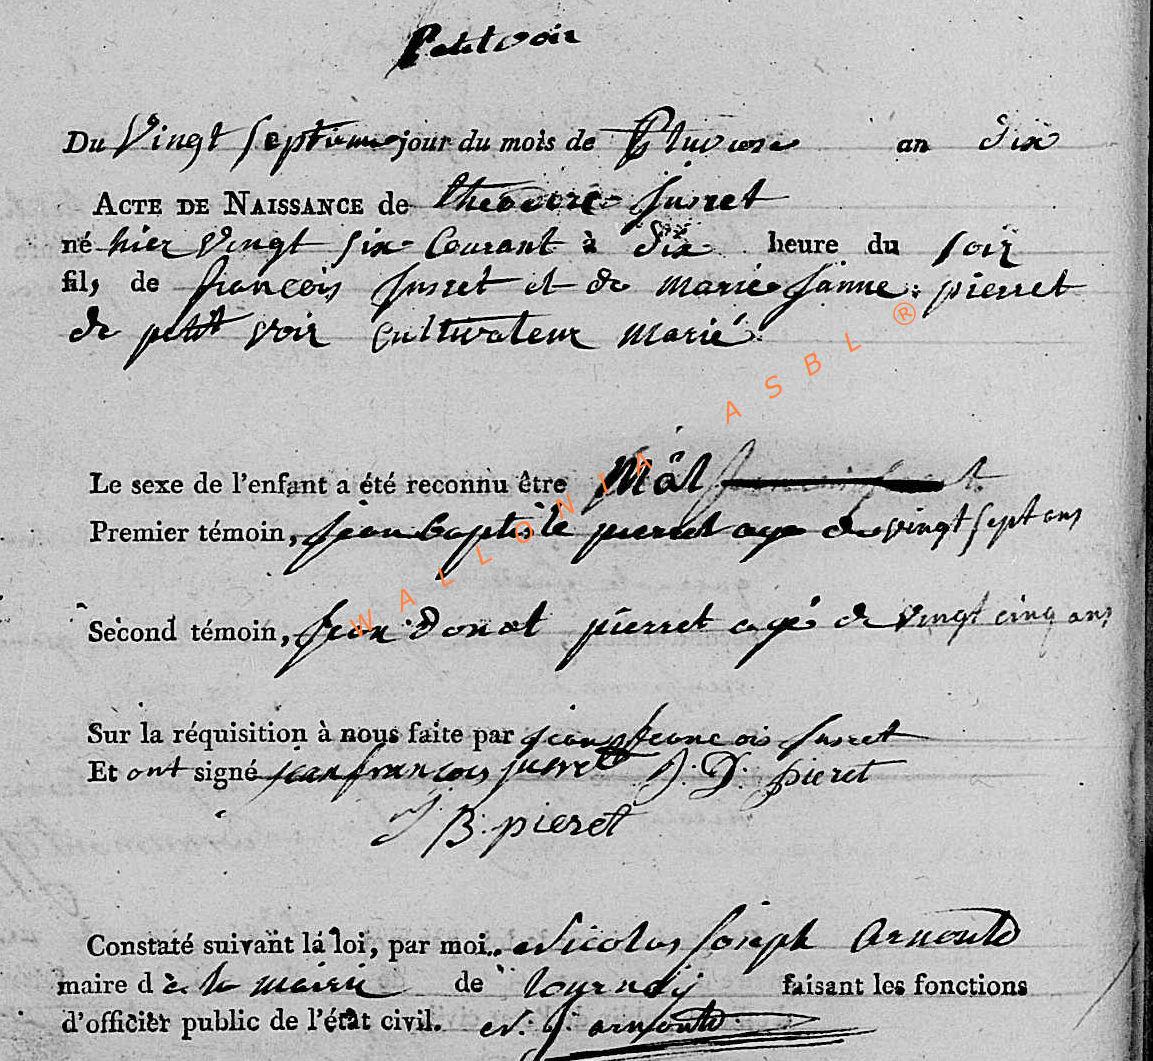 Petitvoir
Du Vingt septieme jour du mois de Pluviose an dix
ACTE DE NAISSANCE de theodore Jusret
né hier vingt six Courant à dix heure du soir
fils de françois Jusret et de marie Janne pierret
de petit voir Cultivateur marié
Le sexe de l'enfant a été reconnu être Mâl
Premier témoin, jean baptiste pierret agé de vingt sept ans
Second témoin, jean donat pierret agé de vingt cinq ans
Sur la réquisition à nous faite par jean francois Jusret
Et ont signé jean francois jusret J. D. pieret
J B. pieret
Constaté suivant la loi, par moi Nicolas Joseph Arnould
maire d à la mairie de tournay faisant les fonctions
d'officier public de l'état civil. N. J. arnould
WALLONIA ASBL ®